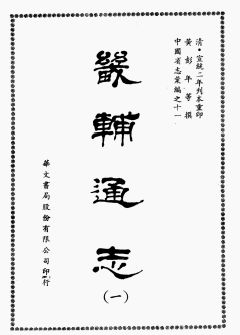 清•宣統二年刊本重印
黃彭年等撰
中國省志彙編之十一
畿輔通志
(一)
華文書局股份有限公司印行